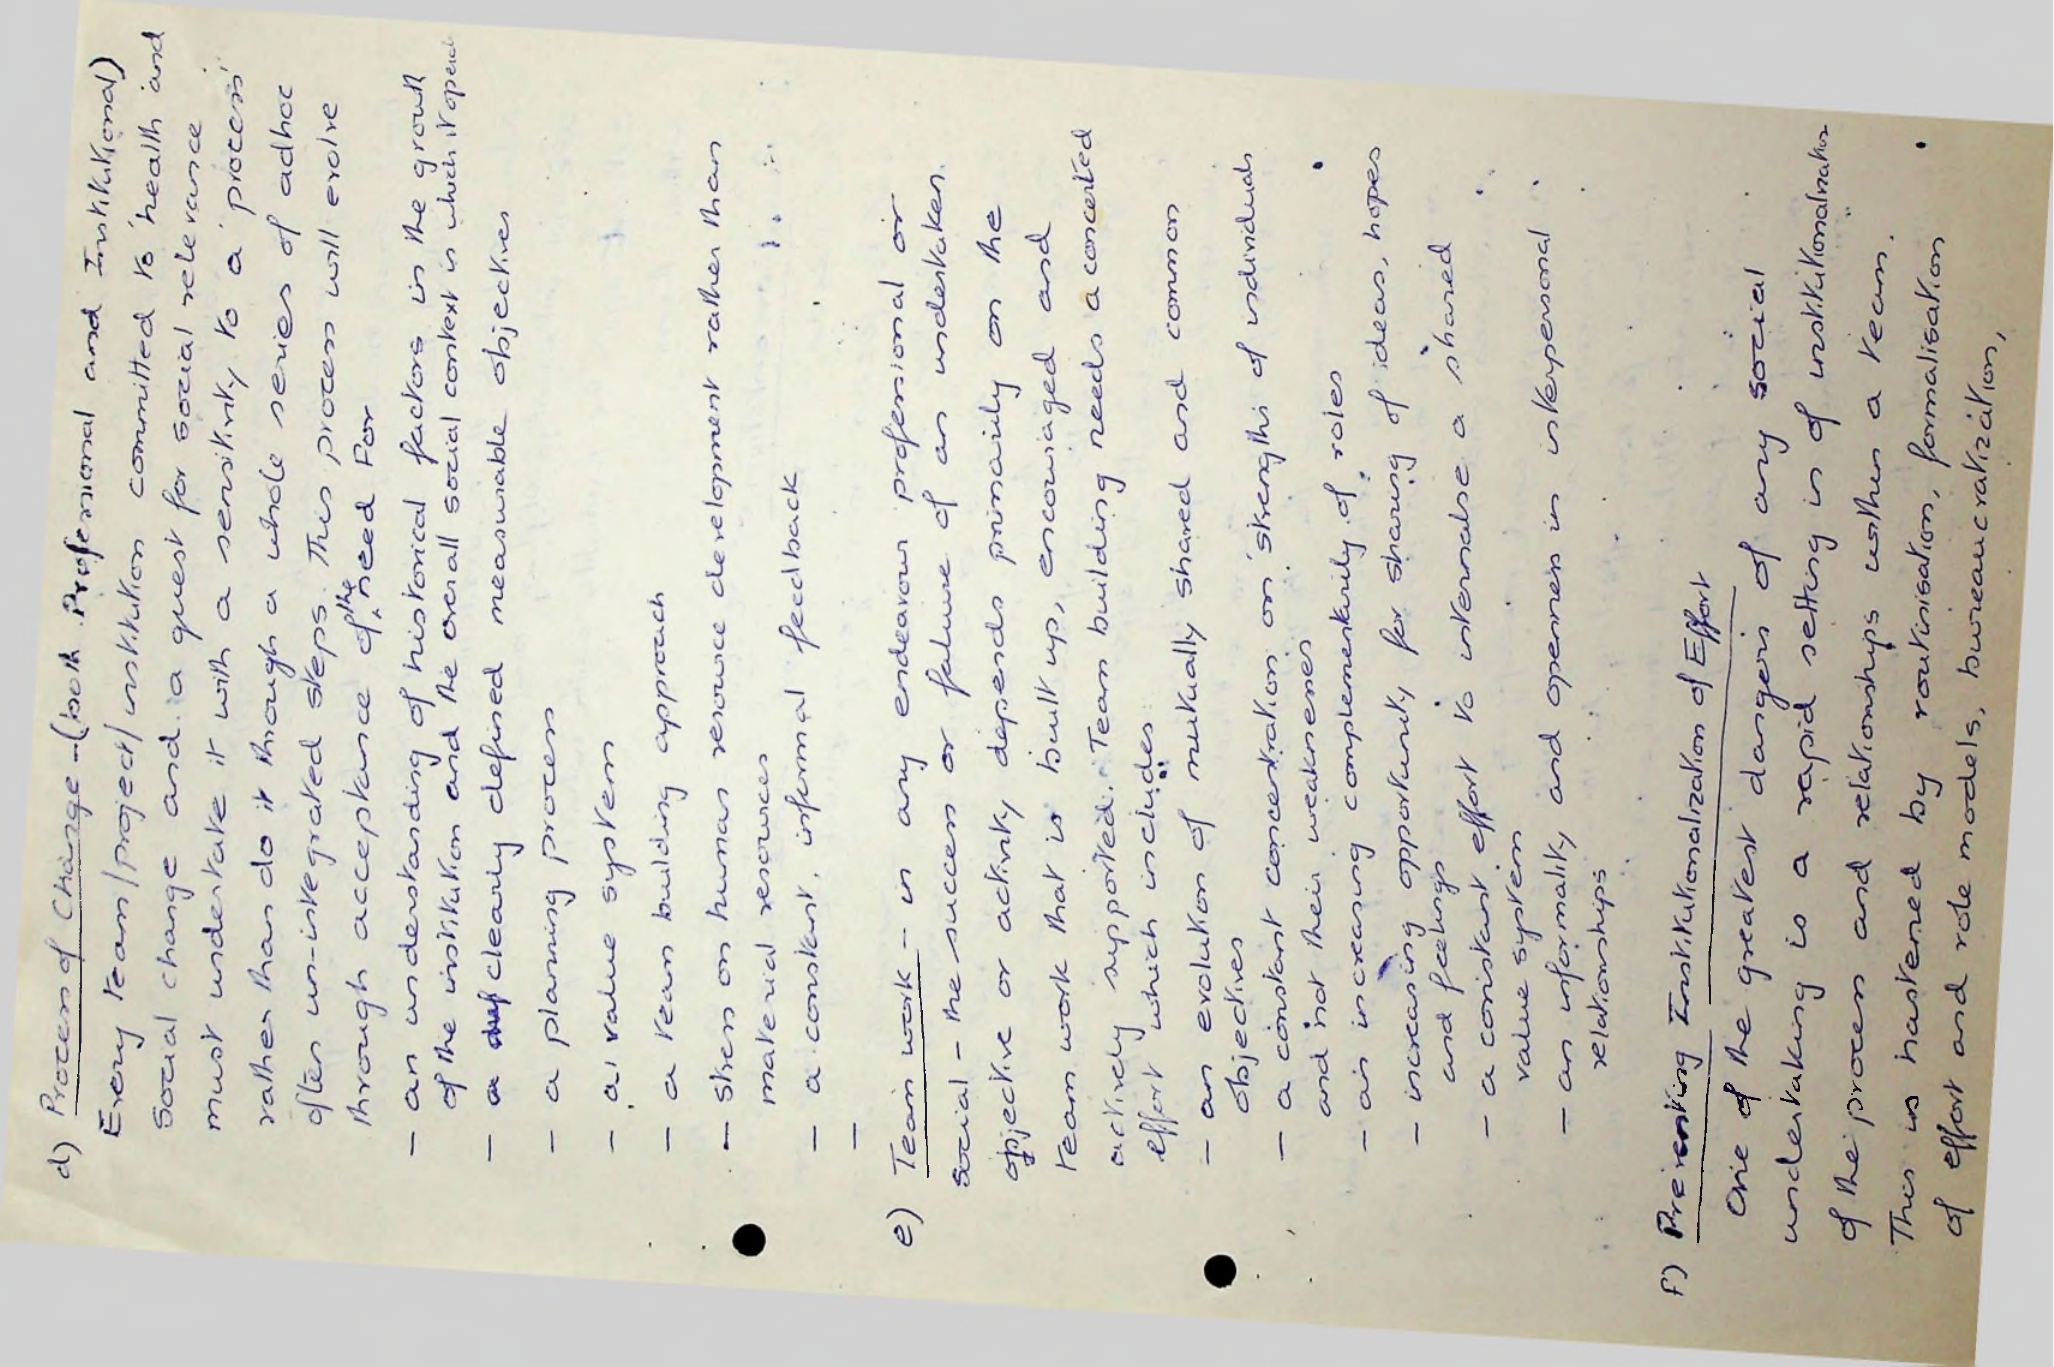 d) Process of Change - (both Professional and Institutional)
Every team/project/institution committed to 'health and
Social change and a quest for social relevance
must undertake it with a sensitivity to a 'process'
rather than do it through a whole series of adhoc
often un-integrated steps. This process will evolve
through acceptance of the need For
- an understanding of historical factors in the growth
of the institution and the overall social context in which it operat
- a clearly defined measurable objectives
- a planning process
- a value system
- a team building approach
- stress on human resource development rather than
material resources
- a constant, informal feedback
-
e) Team work - in any endeavour professional or
Social - the success or failure of an undertaken
objective or activity depends primarily on the
team work that is built up, encouraged and
actively supported. Team building needs a concerted
effort which includes:
- an evolution of mutually shared and common
objectives
- a constant concentration on 'strengths of individuals
and not their weaknesses
- an increasing complementarity of roles
- increasing opportunity for sharing of ideas, hopes
and feelings
- a consistant effort to internalise a shared
value system
- an informality and openness in interpersonal
relationships
f) Preventing Institutionalization of Effort
One of the greatest dangers of any social
undertaking is a rapid setting in of institutionalisation
of the process and relationships within a team.
This is hastened by routinisation, formalisation
of effort and role models, bureaucratization,